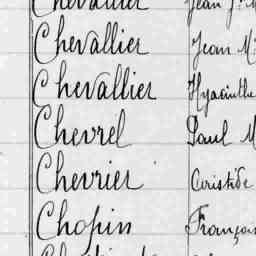 Chevallier Jean
Chevallier Jean M
Chevallier Hyacinthe
Chevrel Paul M
Chevrier Aristide
Chopin François